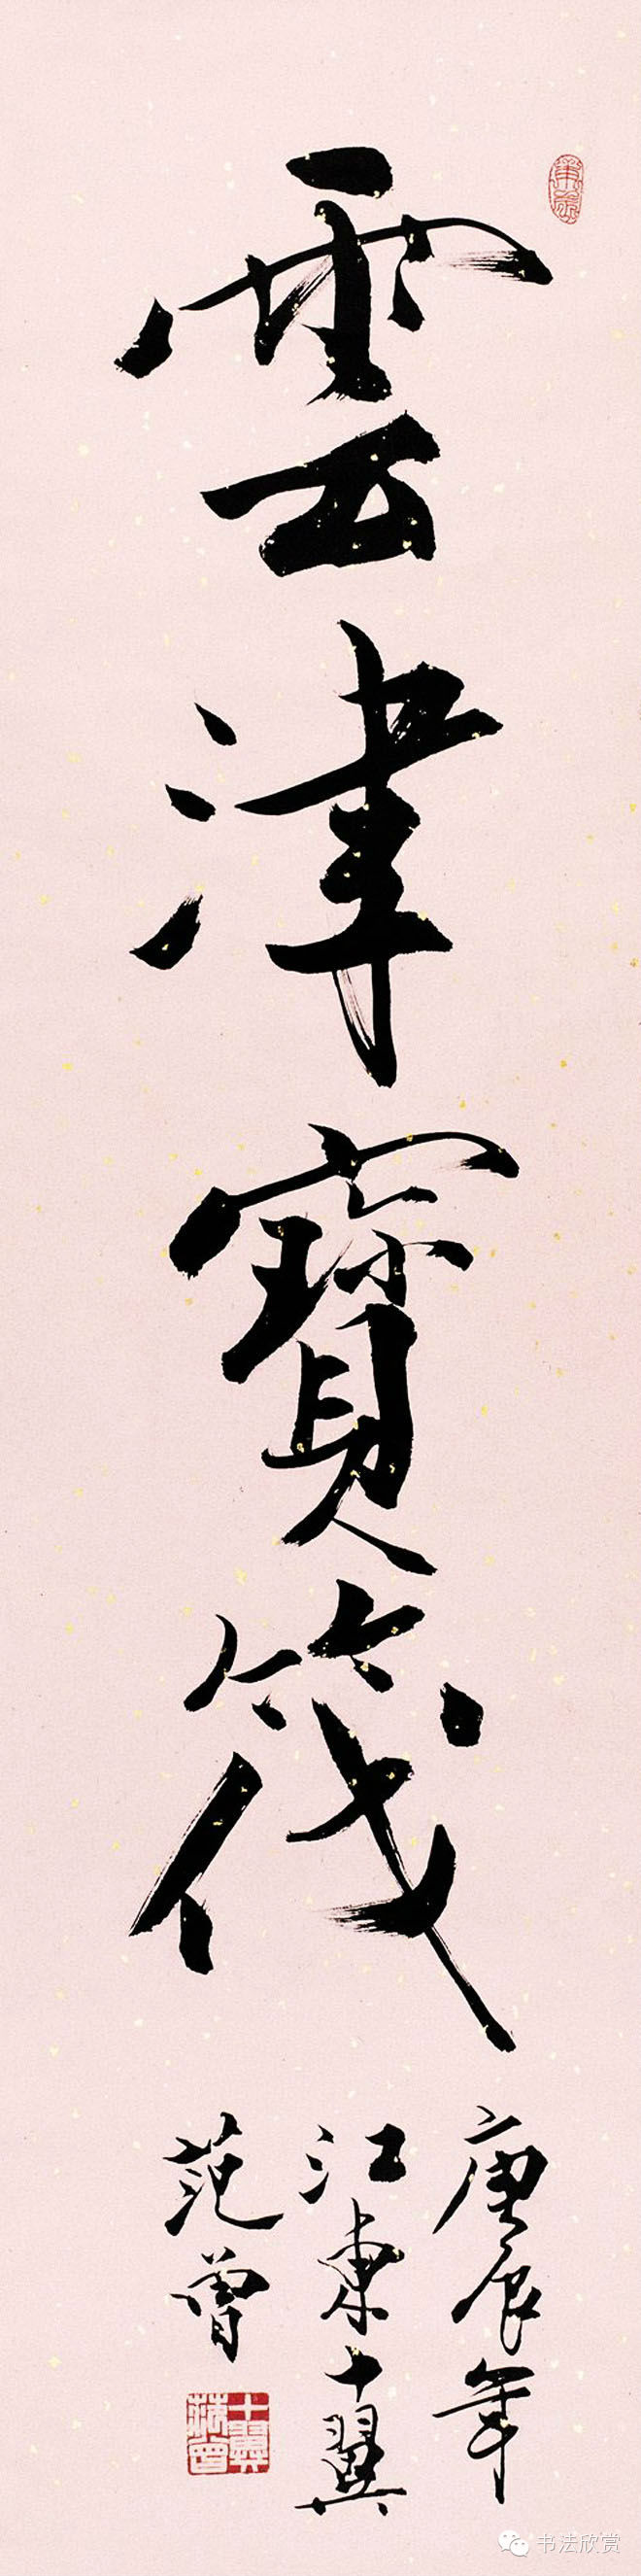 雲津寶筏
庚辰年
江東十翼
范曾
十翼
范曾
书法欣赏